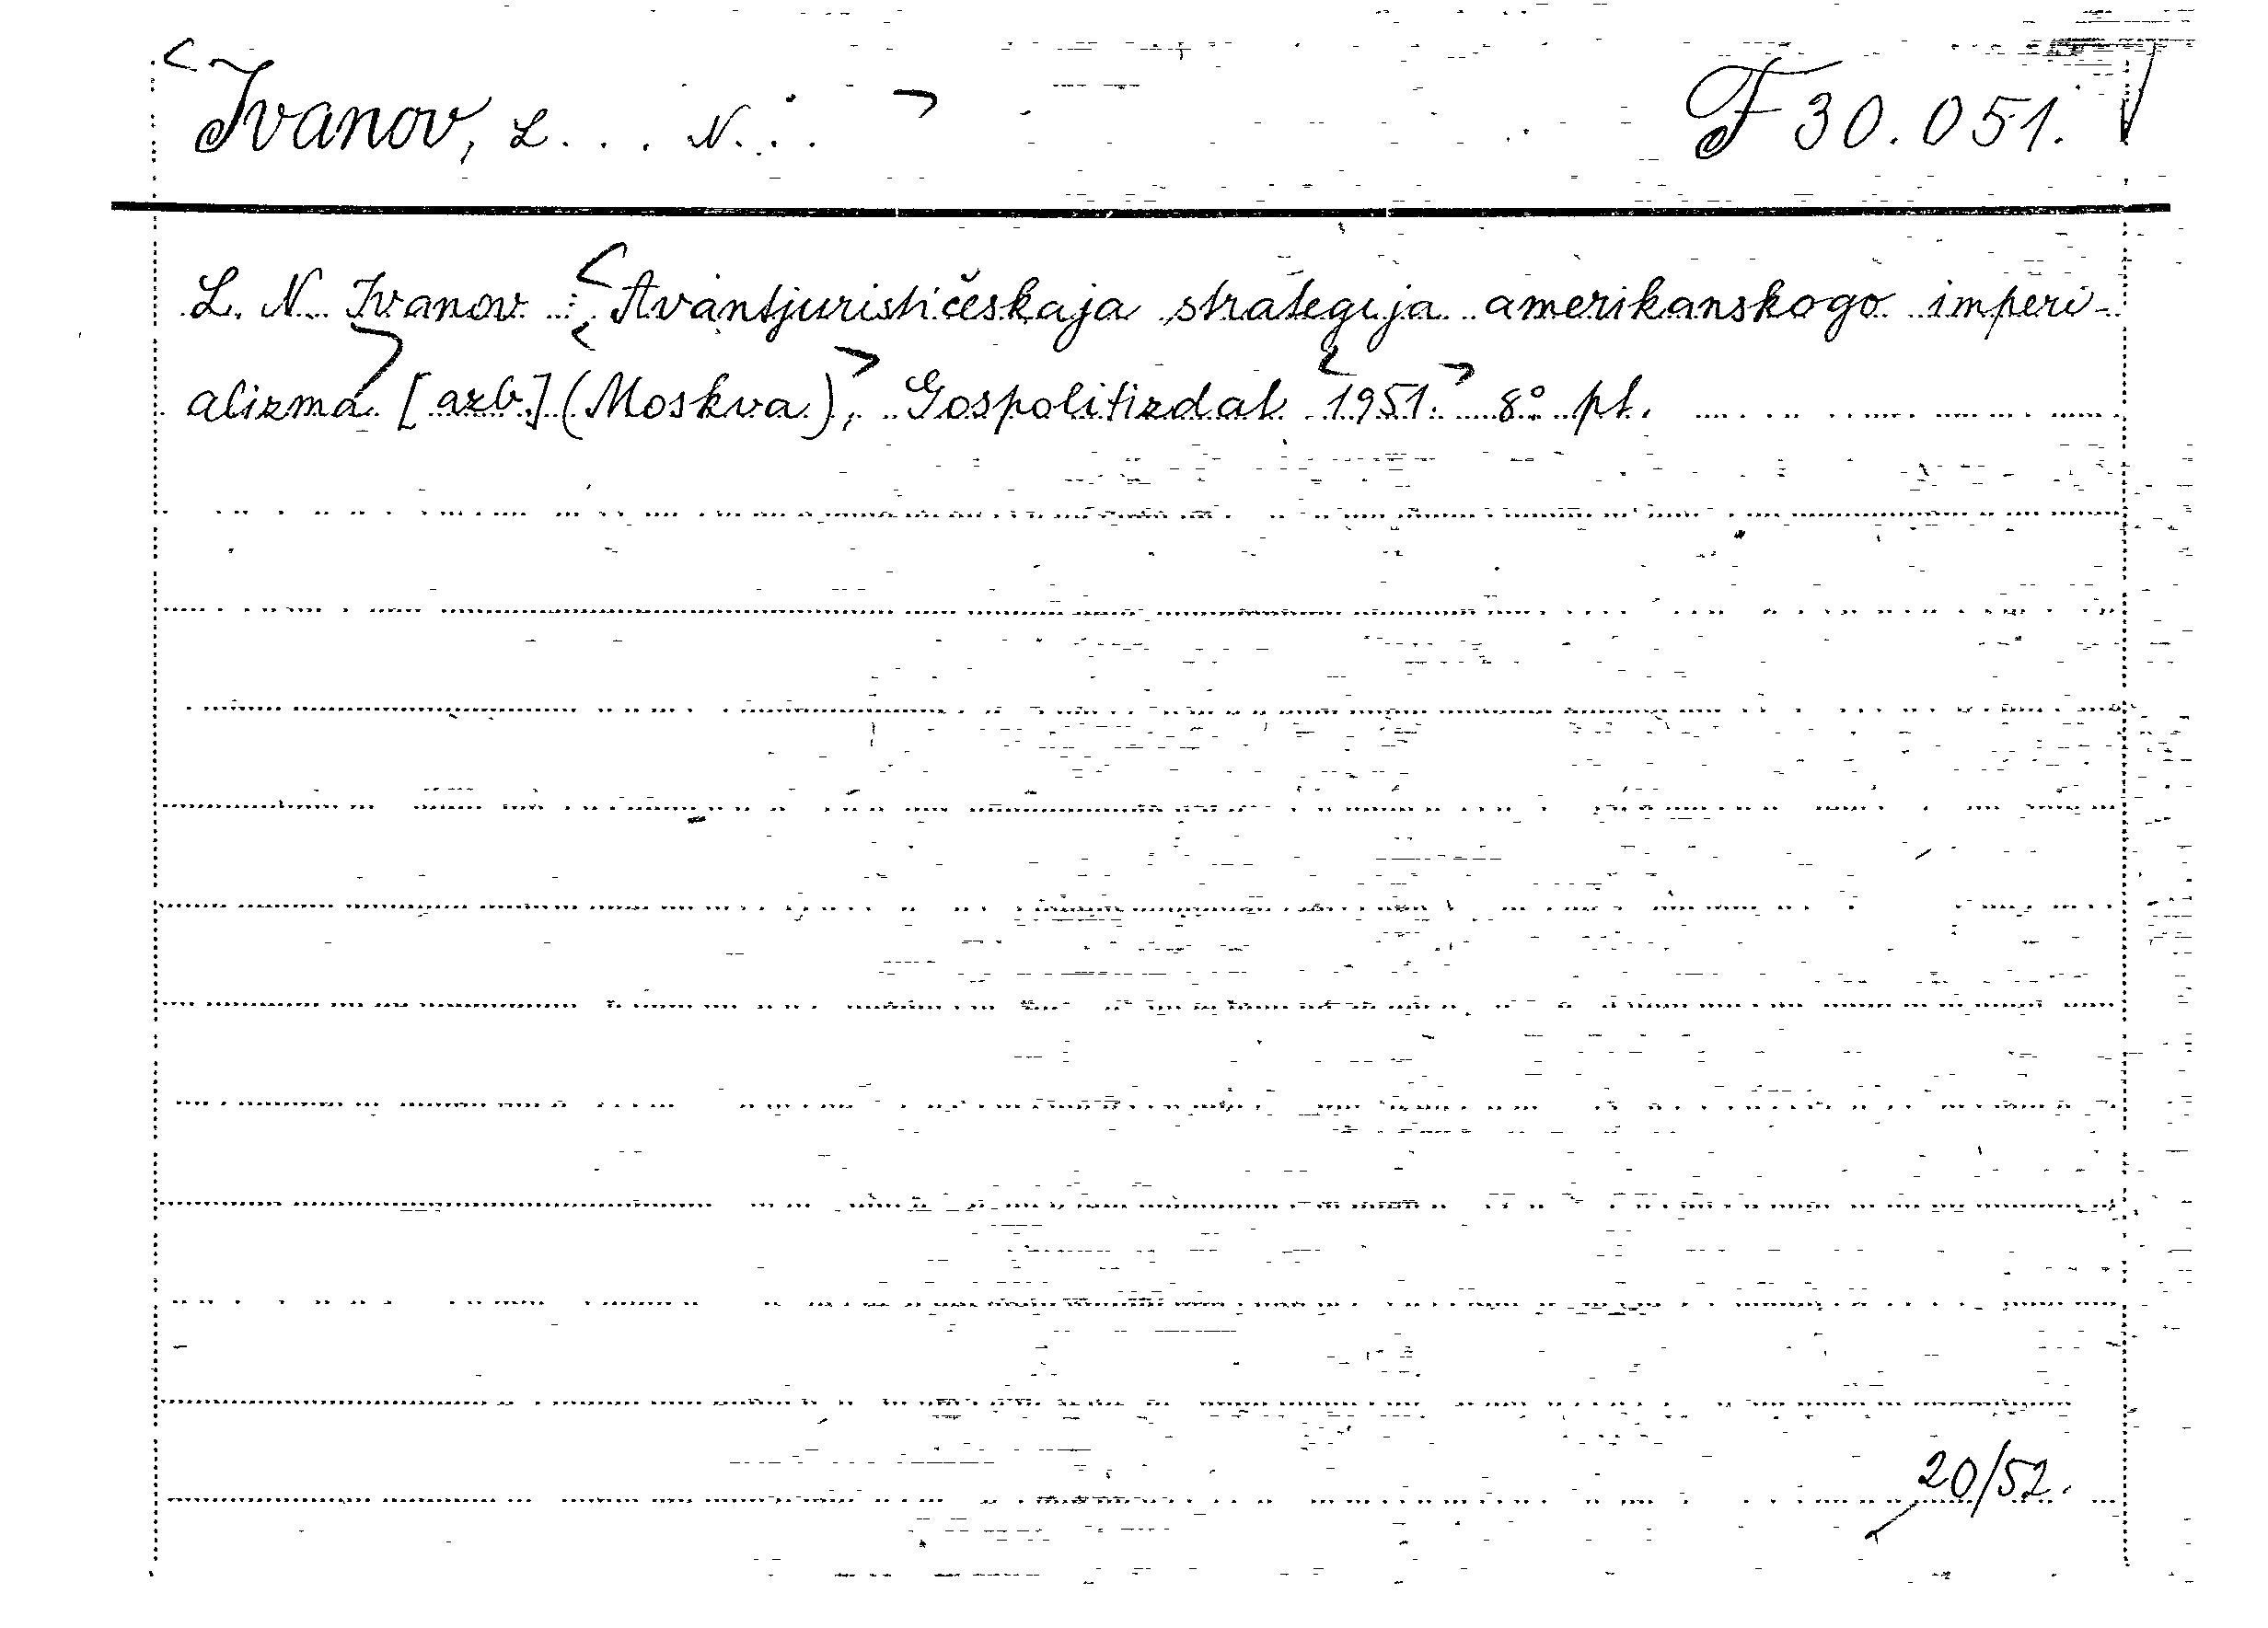 Ivanov, L... N... F 30.051.
L. N. Ivanov : Avantjurističeskaja strategija amerikanskogo imperi-
alizma [azb.] (Moskva), Gospolitizdat 1951. 8° pl.
20/52.